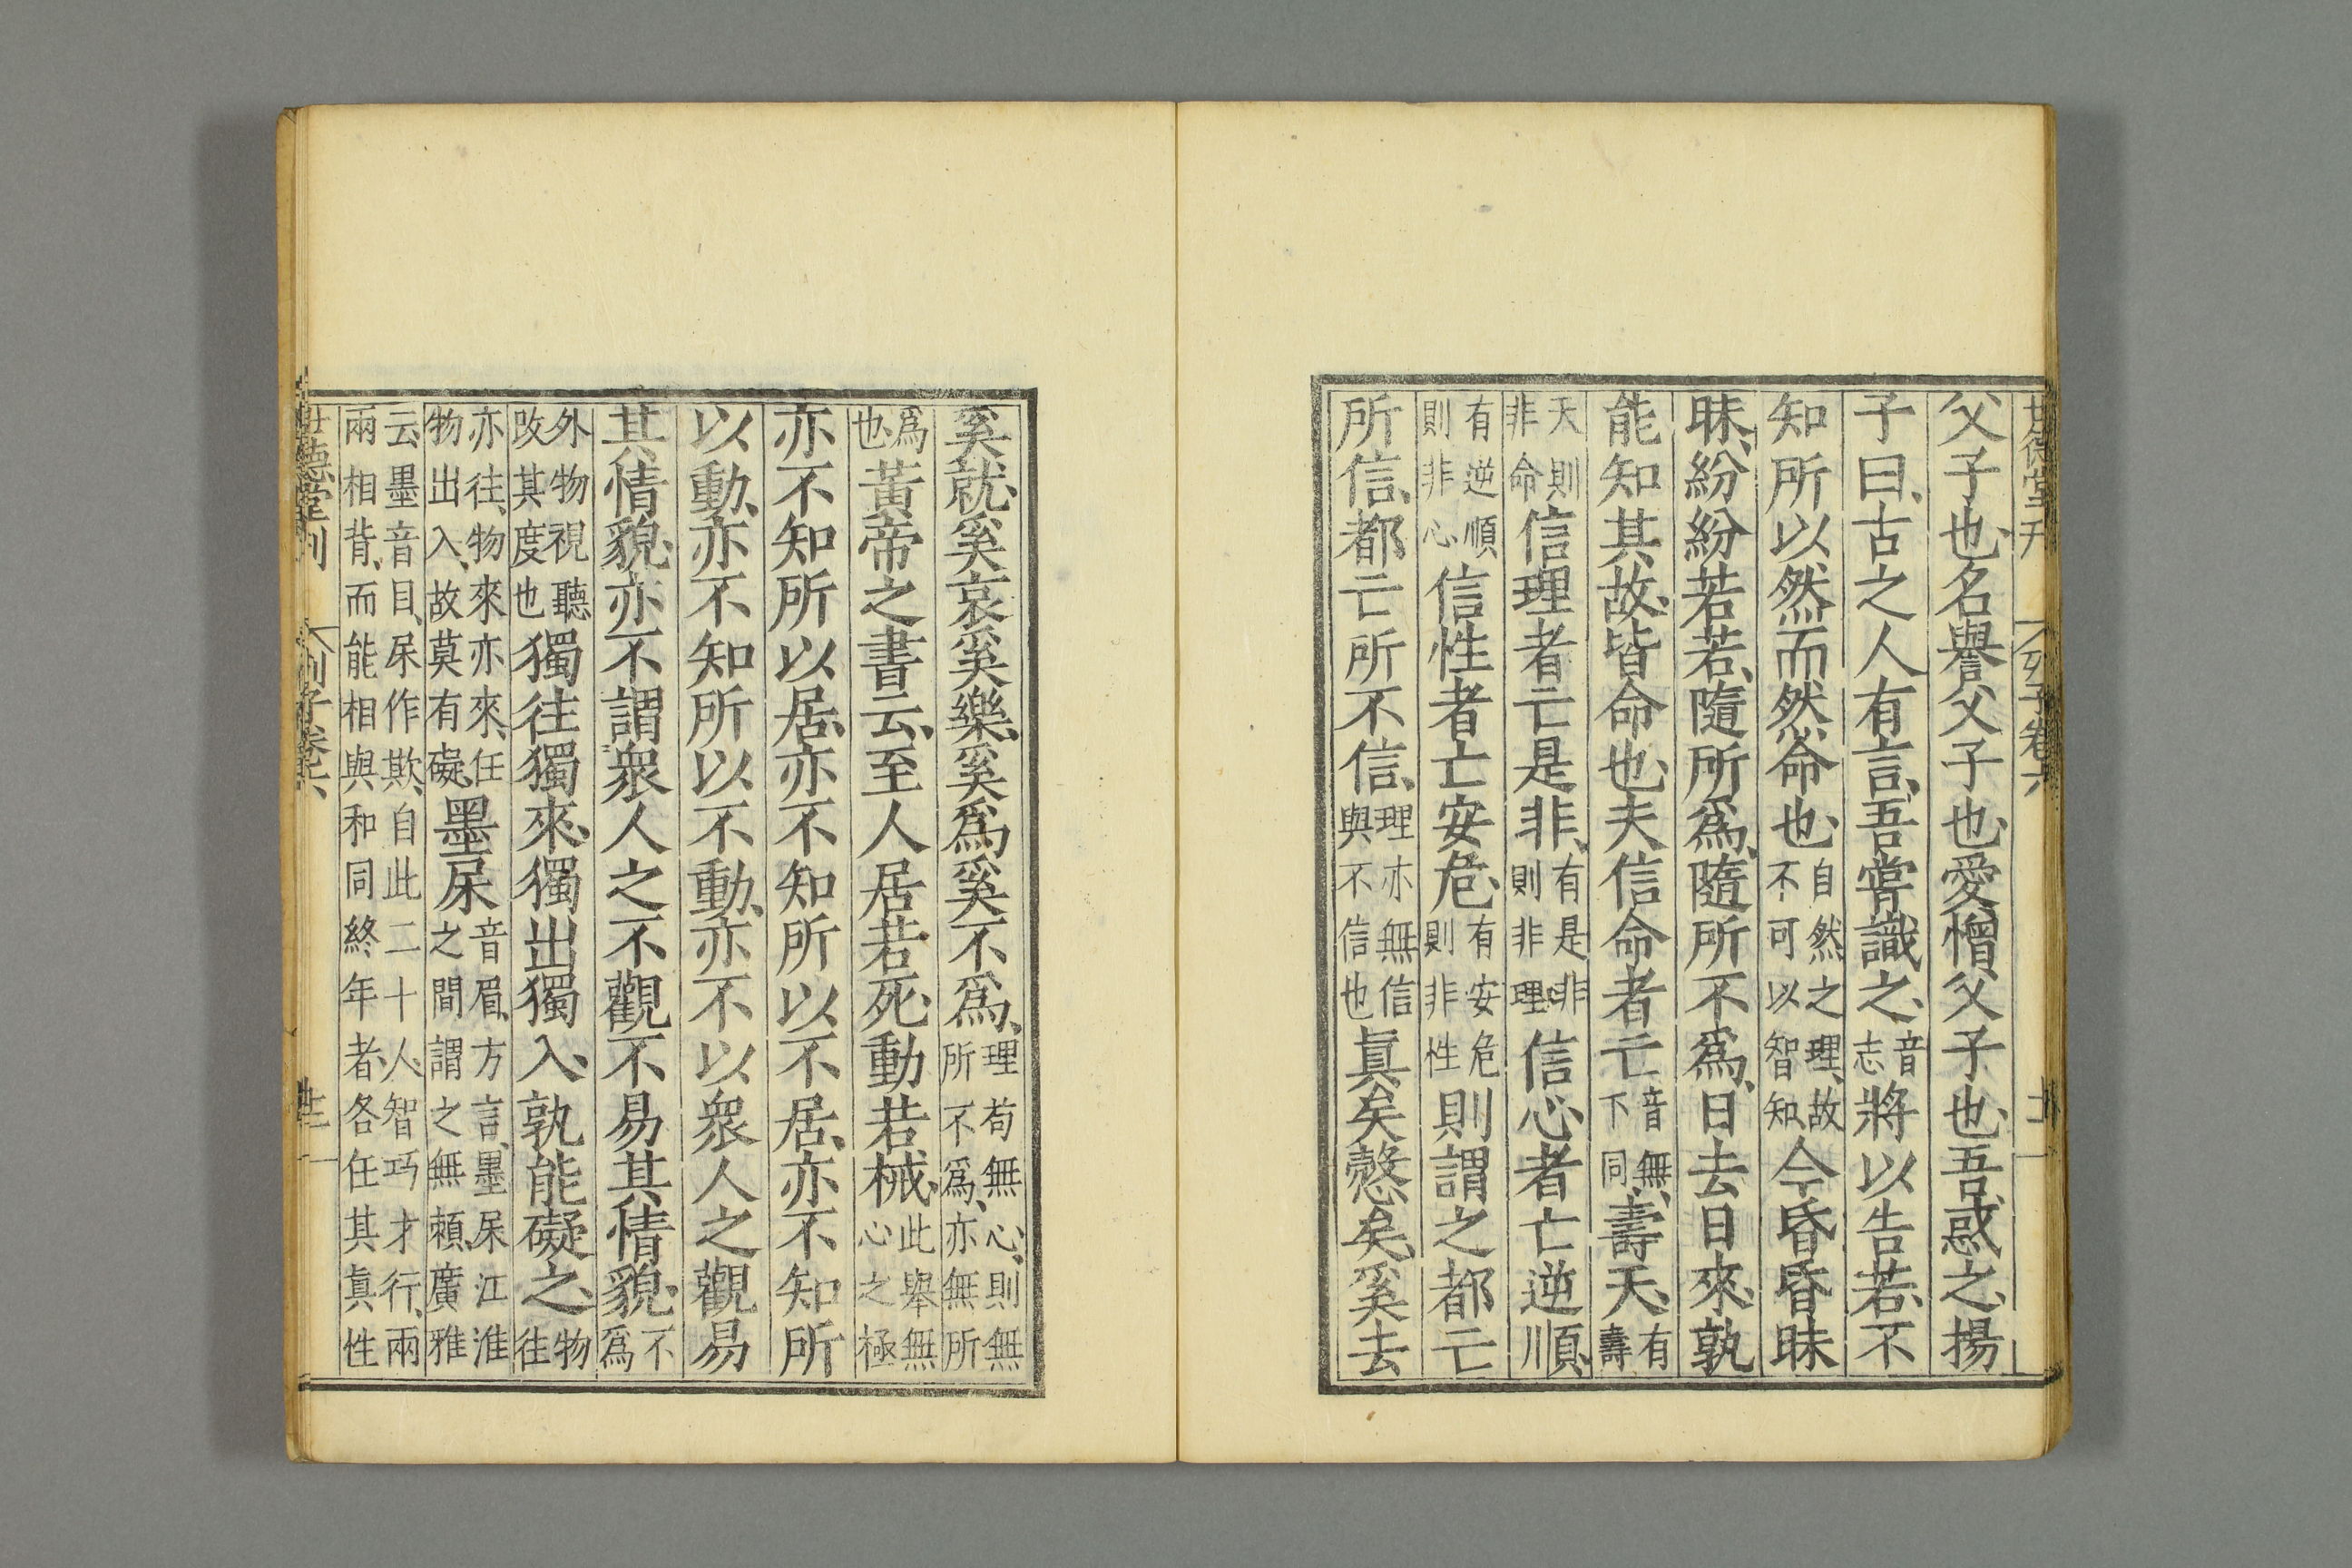 世德堂刊 列子卷六
父子也、名譽父子也、愛憎父子也、吾惑之、揚
子曰、古之人有言、吾嘗識之、音志將以告若、不
知所以然而然命也、自然之理、故不可以智知、今昏昏昧
昧、紛紛若若、隨所爲、隨所不爲、日去日來、孰
能知其故、皆命也、夫信命者亡音無、下同、壽夭、有壽
夭則非命信理者亡是非、有是非則非理信心者亡逆順、
有逆順則非心信性者亡安危、有安危則非性則謂之都亡
所信、都亡所不信、理亦無信與不信也眞矣慤矣、奚去
奚就、奚哀奚樂、奚爲奚不爲、理苟無心、則無所不爲、亦無所
爲也、黃帝之書云、至人居若死、動若械、此舉無心之極
亦不知所以居、亦不知所以不居、亦不知所
以動、亦不知所以不動、亦不以衆人之觀易
其情貌、亦不謂衆人之不觀不易其情貌、不爲
外物視聽改其度也獨往獨來、獨出獨入、孰能礙之、物往
亦往、物來亦來、任物出入、故莫有礙、墨杘音眉、方言、墨杘江淮之間謂之無賴、廣雅
云墨音目、杘作欺、自此二十人、智巧才行、兩兩相背、而能相與和同終年者、各任其眞性
世德堂刊 列子卷六